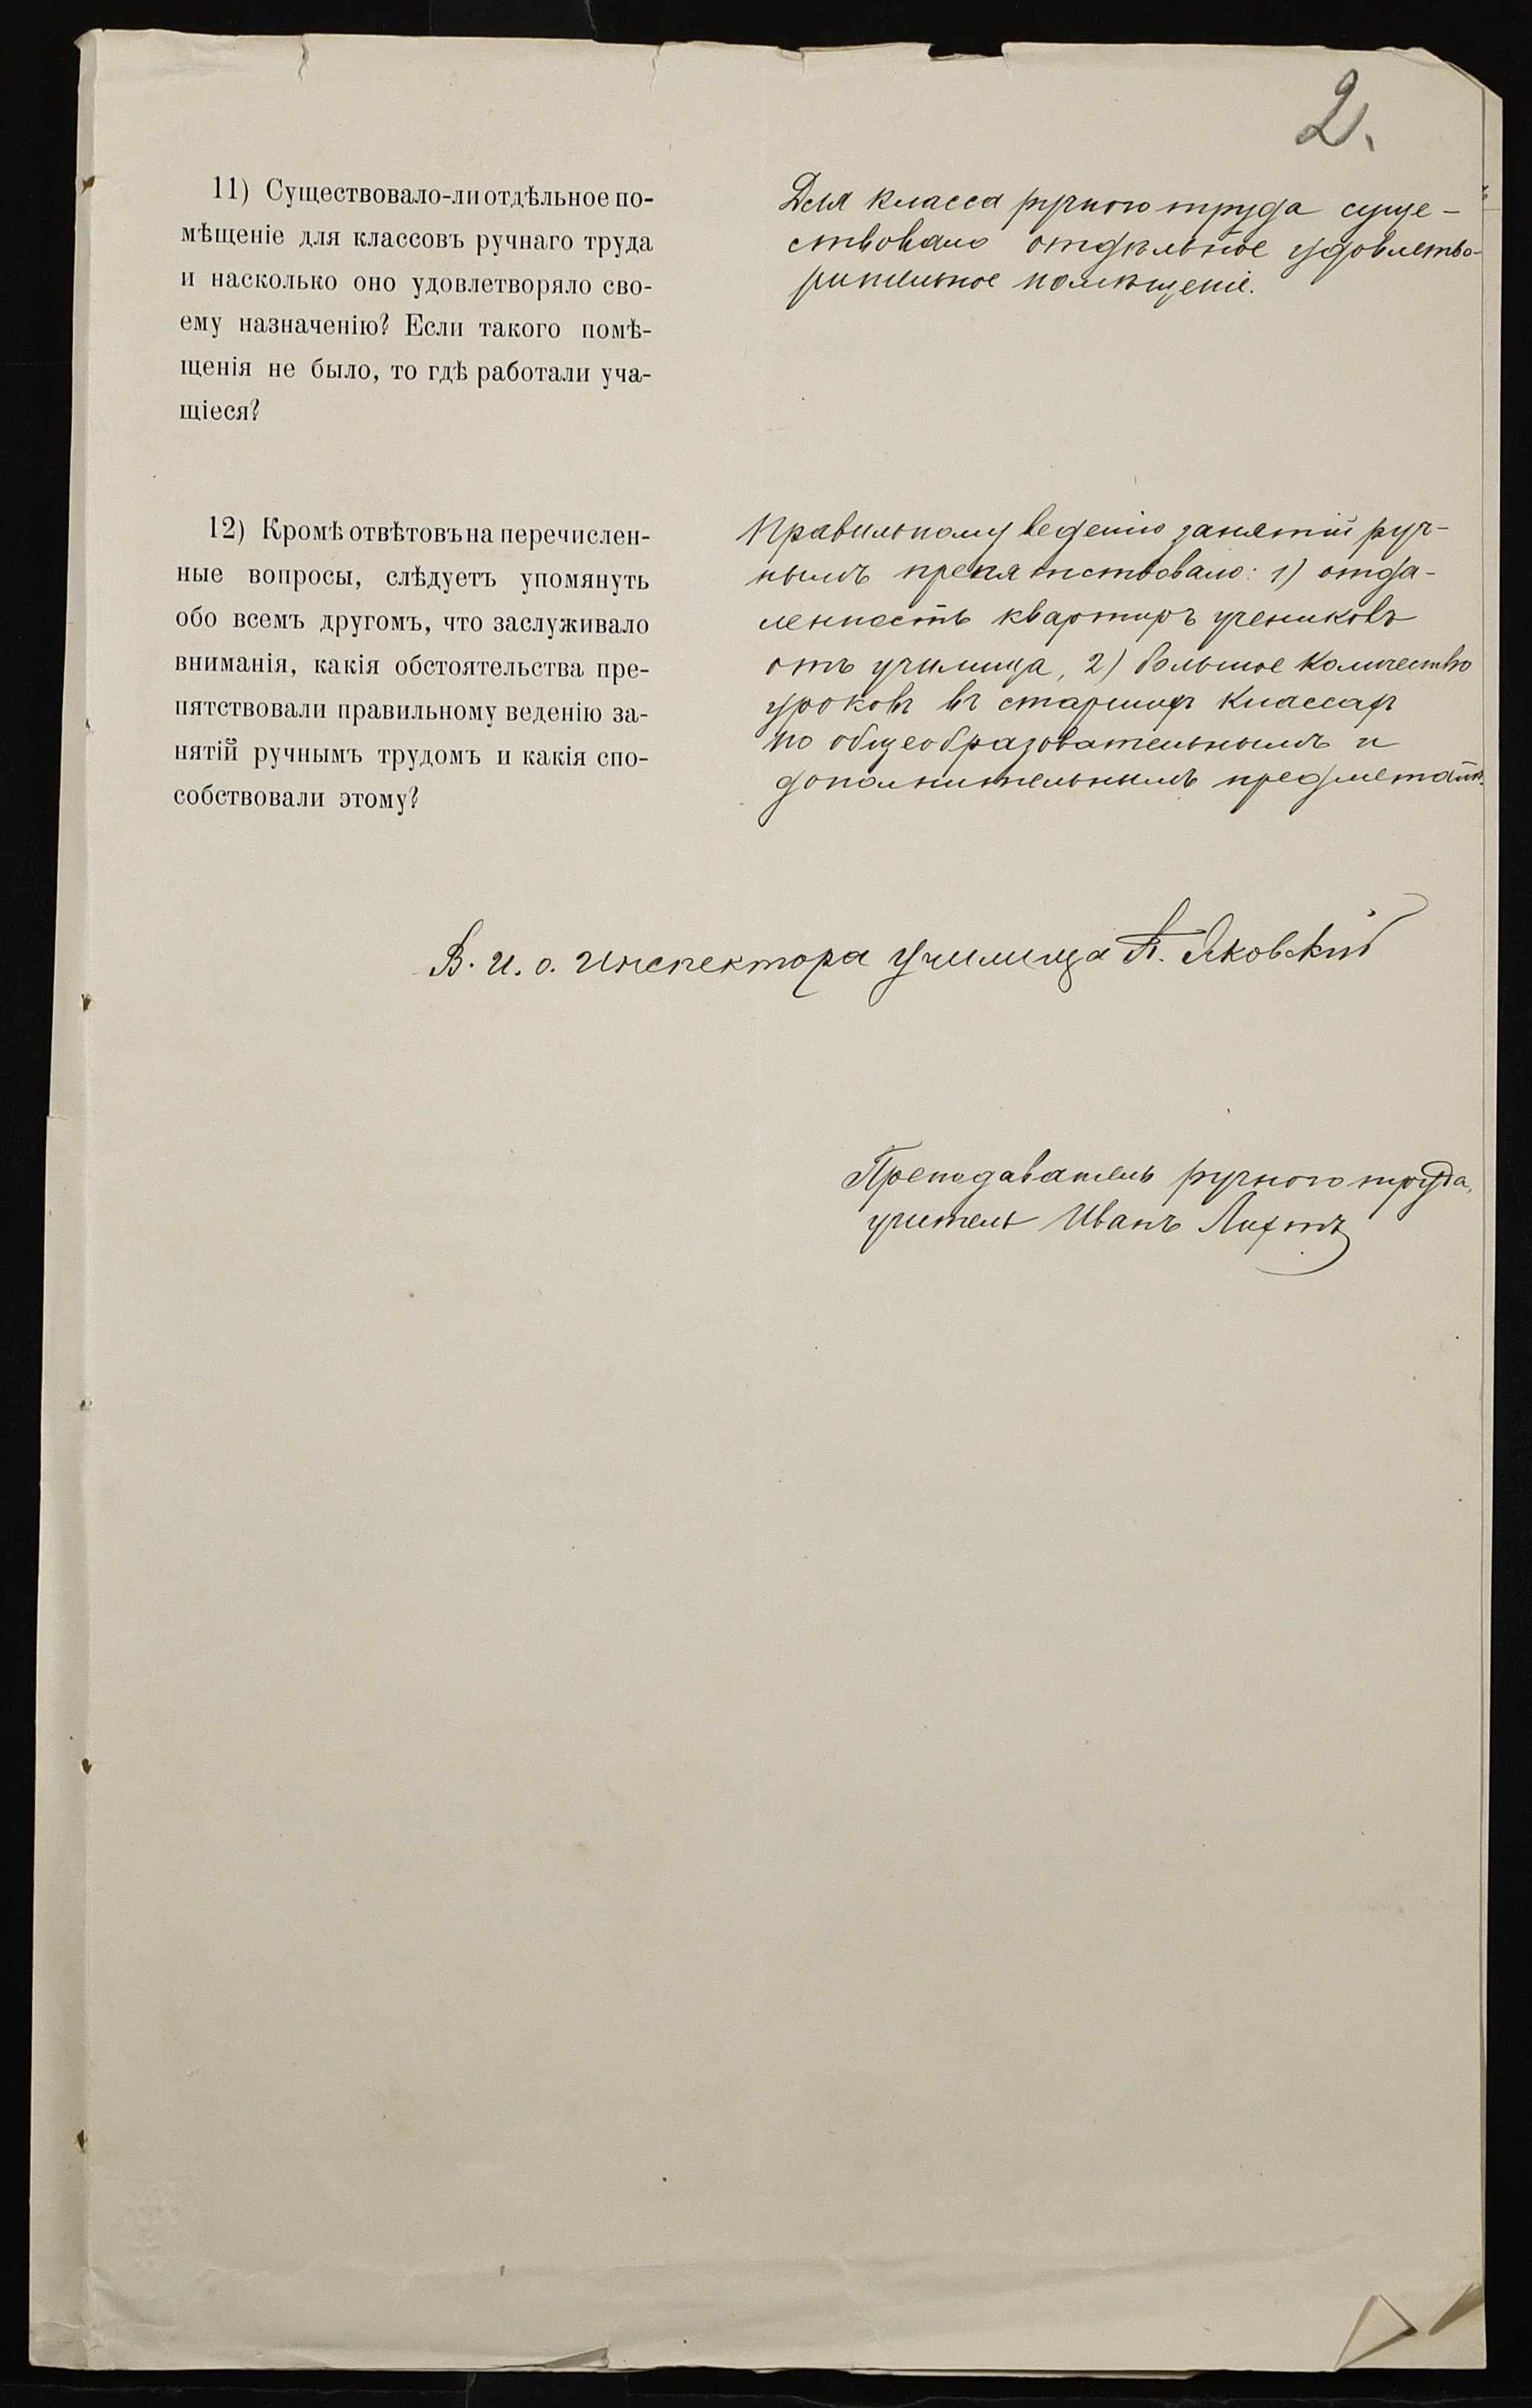 2.
11) Существовало-ли отдѣльное по-
мѣщеніе для классовъ ручнаго труда
и насколько оно удовлетворяло сво-
ему назначенію? Если такого помѣ-
щенія не было, то гдѣ работали уча-
щіеся?
Для класса ручного труда суще-
ствовало отдѣльное удовлетво-
рительное помѣщеніе.
12) Кромѣ отвѣтовъ на перечислен-
ные вопросы, слѣдуетъ упомянуть
обо всемъ другомъ, что заслуживало
вниманія, какія обстоятельства пре-
пятствовали правильному веденію за-
нятій ручнымъ трудомъ и какія спо-
собствовали этому?
Правильному веденію занятій руч-
нымъ препятствовало: 1) отда-
ленность квартиръ учениковъ
отъ училища, 2) большое количество
уроковъ въ старшихъ классахъ
по общеобразовательнымъ и
дополнительнымъ предметамъ.
В. и. о. инспектора училища П. Яковскій
Преподаватель ручного труда,
учитель Иванъ Лихтъ